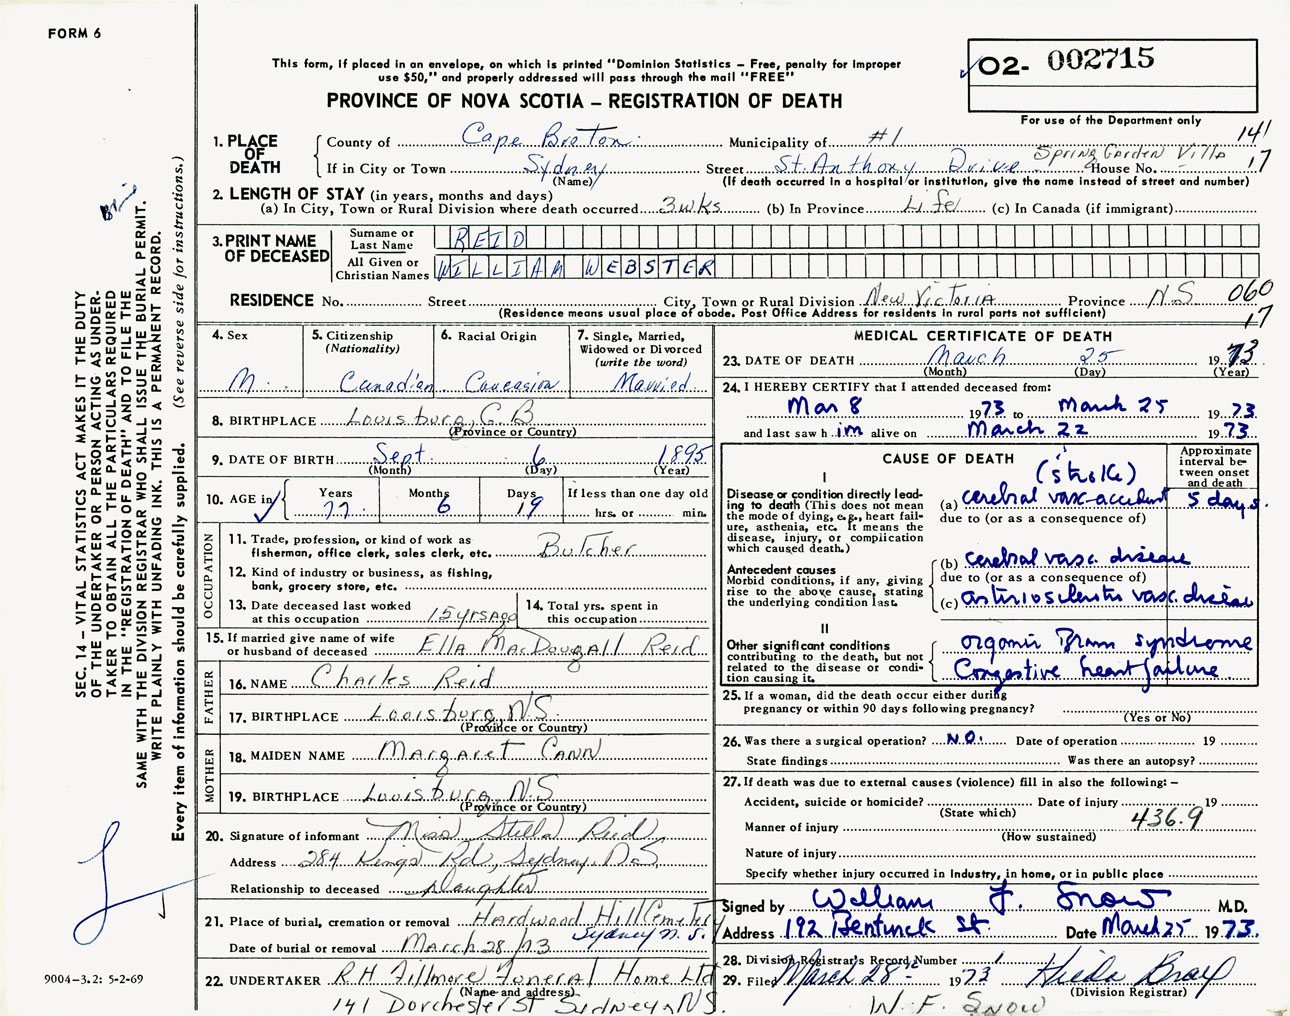 FORM 6
This form, if placed in an envelope, on which is printed "Dominion Statistics – Free, penalty for improper
use $50," and properly addressed will pass through the mail "FREE"
PROVINCE OF NOVA SCOTIA – REGISTRATION OF DEATH
O2- 002715
For use of the Department only
141
17
1. PLACE OF DEATH
County of Cape Breton Municipality of #1
If in City or Town Sydney Street St. Anthony Drive Spring Garden Villa House No. -
(Name) (If death occurred in a hospital or institution, give the name instead of street and number)
2. LENGTH OF STAY (in years, months and days)
(a) In City, Town or Rural Division where death occurred 3wks (b) In Province Life (c) In Canada (if immigrant)
3. PRINT NAME OF DECEASED
Surname or Last Name REID
All Given or Christian Names WILLIAM WEBSTER
RESIDENCE No. Street City, Town or Rural Division New Victoria Province N.S 060
(Residence means usual place of abode. Post Office Address for residents in rural parts not sufficient) 17
4. Sex M.
5. Citizenship (Nationality) Canadian
6. Racial Origin Caucasion
7. Single, Married, Widowed or Divorced (write the word) Married
8. BIRTHPLACE Louisburg, C.B
(Province or Country)
9. DATE OF BIRTH Sept 6 1895
(Month) (Day) (Year)
10. AGE in Years 77 Months 6 Days 19 If less than one day old
hrs. or min.
OCCUPATION
11. Trade, profession, or kind of work as
fisherman, office clerk, sales clerk, etc. Butcher
12. Kind of industry or business, as fishing,
bank, grocery store, etc.
13. Date deceased last worked
at this occupation 15 yrs ago
14. Total yrs. spent in
this occupation
15. If married give name of wife
or husband of deceased Ella MacDougall Reid
FATHER
16. NAME Charles Reid
17. BIRTHPLACE Louisburg N.S.
(Province or Country)
MOTHER
18. MAIDEN NAME Margaret Cann
19. BIRTHPLACE Louisburg N.S
(Province or Country)
20. Signature of informant Miss Stella Reid
Address 284 Kings Rd, Sydney, N.S
Relationship to deceased daughter
21. Place of burial, cremation or removal Hardwood Hill Cemetery
Sydney N.S.
Date of burial or removal March 28/73
22. UNDERTAKER R.H. Fillmore Funeral Home Ltd
(Name and address)
141 Dorchester St Sydney N.S.
MEDICAL CERTIFICATE OF DEATH
23. DATE OF DEATH March 25 1973
(Month) (Day) (Year)
24. I HEREBY CERTIFY that I attended deceased from:
Mar 8 1973 to March 25 1973
and last saw him alive on March 22 1973
CAUSE OF DEATH
Approximate interval between onset and death
I
(stroke)
Disease or condition directly leading to death (This does not mean the mode of dying, e.g., heart failure, asthenia, etc. It means the disease, injury, or complication which caused death.)
(a) cerebral vasc-accident 5 days.
due to (or as a consequence of)
Antecedent causes
Morbid conditions, if any, giving rise to the above cause, stating the underlying condition last.
(b) cerebral vasc. disease
due to (or as a consequence of)
(c) asteriosclerotic vasc. disease
II
Other significant conditions
contributing to the death, but not related to the disease or condition causing it.
organic Brain syndrome
Congestive heart failure
25. If a woman, did the death occur either during
pregnancy or within 90 days following pregnancy?
(Yes or No)
26. Was there a surgical operation? No. Date of operation 19
State findings Was there an autopsy?
27. If death was due to external causes (violence) fill in also the following: –
Accident, suicide or homicide? Date of injury 19
(State which)
Manner of injury 436.9
(How sustained)
Nature of injury
Specify whether injury occurred in Industry, in home, or in public place
Signed by William F. Snow M.D.
Address 192 Bentinck St. Date March 25 1973.
28. Division Registrar's Record Number
29. Filed March 28 1973 Hilda Bray
(Division Registrar)
W. F. Snow
SEC. 14 – VITAL STATISTICS ACT MAKES IT THE DUTY
OF THE UNDERTAKER OR PERSON ACTING AS UNDER-
TAKER TO OBTAIN ALL THE PARTICULARS REQUIRED
IN THE "REGISTRATION OF DEATH" AND TO FILE THE
SAME WITH THE DIVISION REGISTRAR WHO SHALL ISSUE THE BURIAL PERMIT.
WRITE PLAINLY WITH UNFADING INK. THIS IS A PERMANENT RECORD.
Every item of information should be carefully supplied. (See reverse side for instructions.)
9004–3.2: 5-2-69